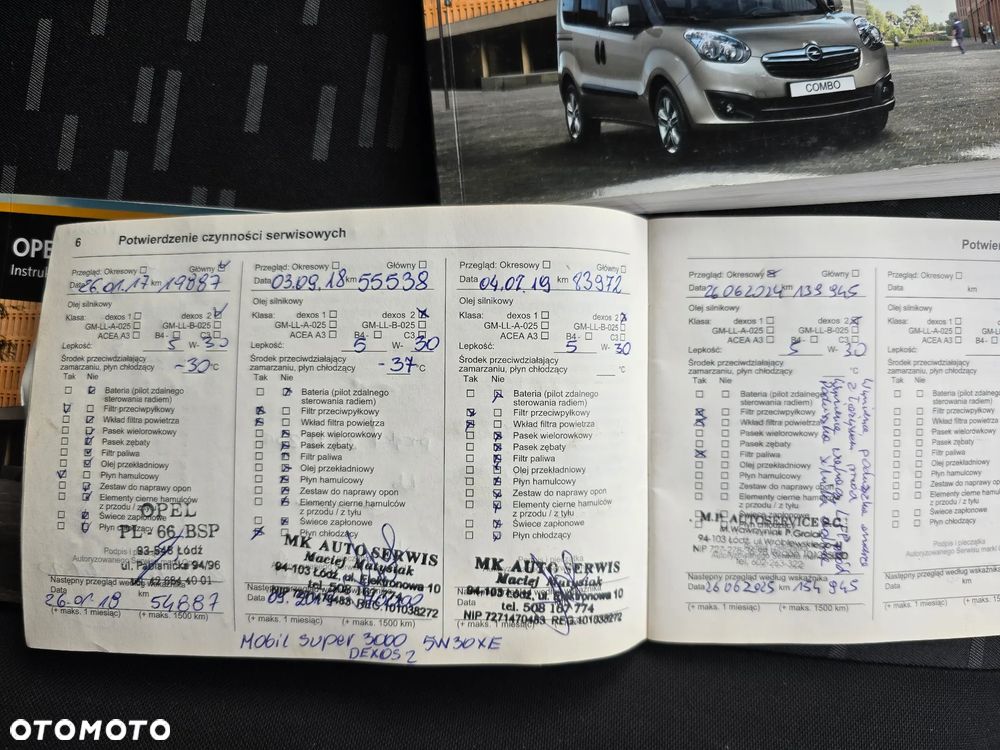 COMBO
OPE
Instru
6 Potwierdzenie czynności serwisowych
Przegląd: Okresowy Główny
Data 26.01.17 km 19887
Olej silnikowy
Klasa: dexos 1 dexos 2
GM-LL-A-025 GM-LL-B-025
ACEA A3 B4- C3
Lepkość: 5 W- 30
Środek przeciwdziałający
zamarzaniu, płyn chłodzący -30 °C
Tak Nie
Bateria (pilot zdalnego
sterowania radiem)
Filtr przeciwpyłkowy
Wkład filtra powietrza
Pasek wielorowkowy
Pasek zębaty
Filtr paliwa
Olej przekładniowy
Płyn hamulcowy
Zestaw do naprawy opon
Elementy cierne hamulców
z przodu / z tyłu
Świece zapłonowe
Płyn chłodzący
OPEL
PL - 66 / BSP
93-545 Łódź
ul. Pabianicka 94/96
tel. 42 684 40 01
Następny przegląd według wskaźnika
Data 26.01.18 km 54887
(+ maks. 1 miesiąc) (+ maks. 1500 km)
Przegląd: Okresowy Główny
Data 03.09.18 km 55538
Olej silnikowy
Klasa: dexos 1 dexos 2
GM-LL-A-025 GM-LL-B-025
ACEA A3 B4- C3
Lepkość: 5 W- 30
Środek przeciwdziałający
zamarzaniu, płyn chłodzący -37 °C
Tak Nie
Bateria (pilot zdalnego
sterowania radiem)
Filtr przeciwpyłkowy
Wkład filtra powietrza
Pasek wielorowkowy
Pasek zębaty
Filtr paliwa
Olej przekładniowy
Płyn hamulcowy
Zestaw do naprawy opon
Elementy cierne hamulców
z przodu / z tyłu
Świece zapłonowe
Płyn chłodzący
MK AUTO SERWIS
Maciej Matysiak
94-103 Łódź, ul. Elektronowa 10
tel. 508 167 774
NIP 7271470483 REG.101038272
Data 09.2019
(+ maks. 1 miesiąc) (+ maks. 1500 km)
MOBIL SUPER 3000 5W30XE
DEXOS 2
Przegląd: Okresowy Główny
Data 04.07.19 km 83972
Olej silnikowy
Klasa: dexos 1 dexos 2
GM-LL-A-025 GM-LL-B-025
ACEA A3 B4- C3
Lepkość: 5 W- 30
Środek przeciwdziałający
zamarzaniu, płyn chłodzący °C
Tak Nie
Bateria (pilot zdalnego
sterowania radiem)
Filtr przeciwpyłkowy
Wkład filtra powietrza
Pasek wielorowkowy
Pasek zębaty
Filtr paliwa
Olej przekładniowy
Płyn hamulcowy
Zestaw do naprawy opon
Elementy cierne hamulców
z przodu / z tyłu
Świece zapłonowe
Płyn chłodzący
MK AUTO SERWIS
Maciej Matysiak
94-103 Łódź, ul. Elektronowa 10
tel. 508 167 774
NIP 7271470483 REG.101038272
(+ maks. 1 miesiąc) (+ maks. 1500 km)
Potwier
Przegląd: Okresowy Główny
Data 26.06.2024 km 139 945
Olej silnikowy
Klasa: dexos 1 dexos 2
GM-LL-A-025 GM-LL-B-025
ACEA A3 B4- C3
Lepkość: 5 W- 30
Środek przeciwdziałający
zamarzaniu, płyn chłodzący
Tak Nie
Bateria (pilot zdalnego
sterowania radiem)
Filtr przeciwpyłkowy
Wkład filtra powietrza
Pasek wielorowkowy
Pasek zębaty
Filtr paliwa
Olej przekładniowy
Płyn hamulcowy
Zestaw do naprawy opon
Elementy cierne hamulców
z przodu / z tyłu
Świece zapłonowe
Płyn chłodzący
AUTOSERVICE S.C.
tel. 602-263-322
Następny przegląd według wskaźnika
Data 26.06.2025 km 154 945
(+ maks. 1 miesiąc) (+ maks. 1500 km)
Przegląd: Okresowy
Data km
Olej silnikowy
Klasa: dexos 1
GM-LL-A-025
ACEA A3
Lepkość:
Środek przeciwdziałający
zamarzaniu, płyn chłodzący
Tak Nie
Bateria (pilot
sterowania
Filtr przeciw
Wkład filtra
Pasek wielo
Pasek zębat
Filtr paliwa
Olej przekł
Płyn hamul
Zestaw do
Elementy
z przodu /
Świece za
Płyn chło
Podpis i pieczątka
Autoryzowanego Serwisu marki
Następny przegląd według wskaźn
Data km
(+ maks. 1 miesiąc) (+ maks.
OTOMOTO